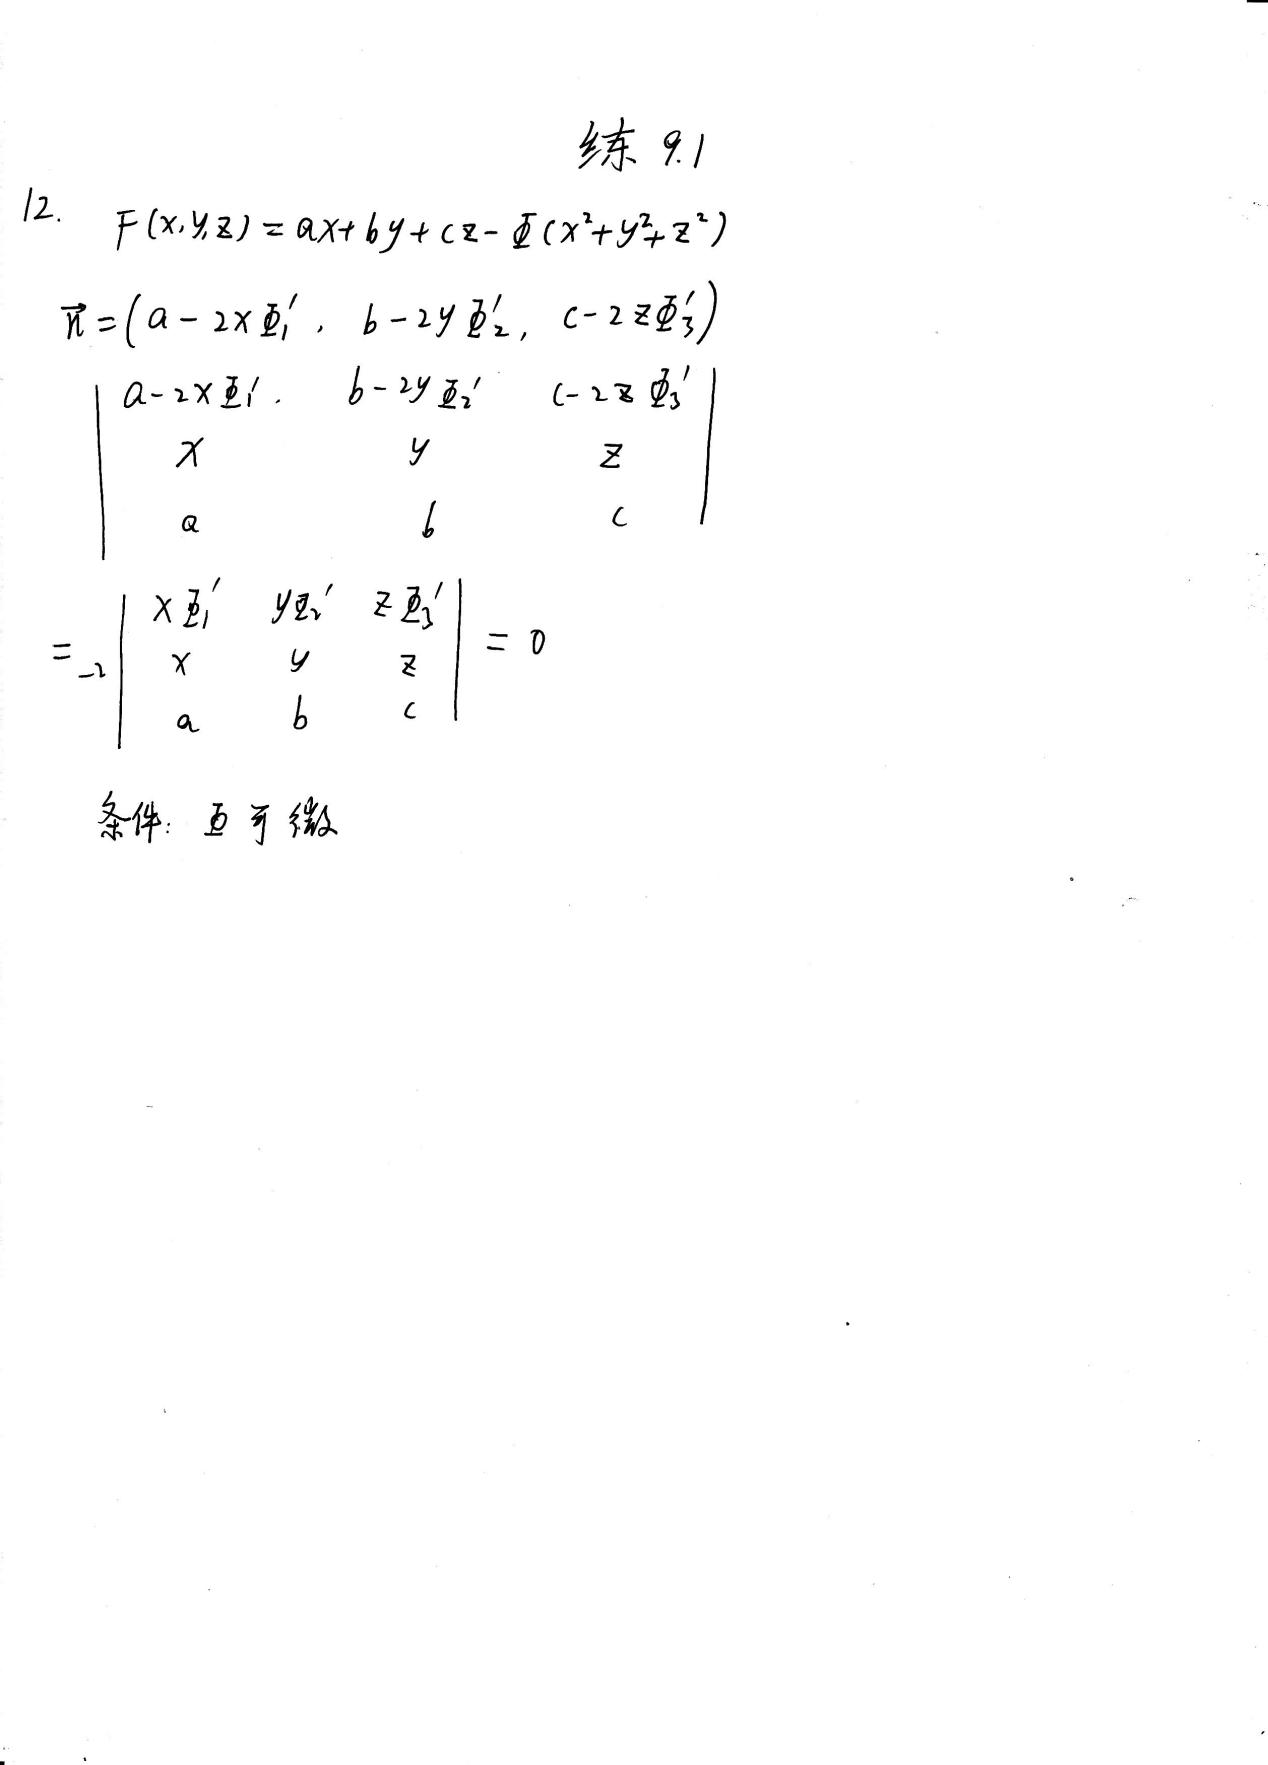 练 9.1
12.
F(x,y,z) = ax+by+cz-Φ(x²+y²+z²)
n⃗=(a-2xΦ₁′, b-2yΦ₂′, c-2zΦ₃′)
| a-2xΦ₁′. b-2yΦ₂′ c-2zΦ₃′ |
| x y z |
| a b c |
= -2 | xΦ₁′ yΦ₂′ zΦ₃′ | = 0
| x y z |
| a b c |
条件: Φ可微